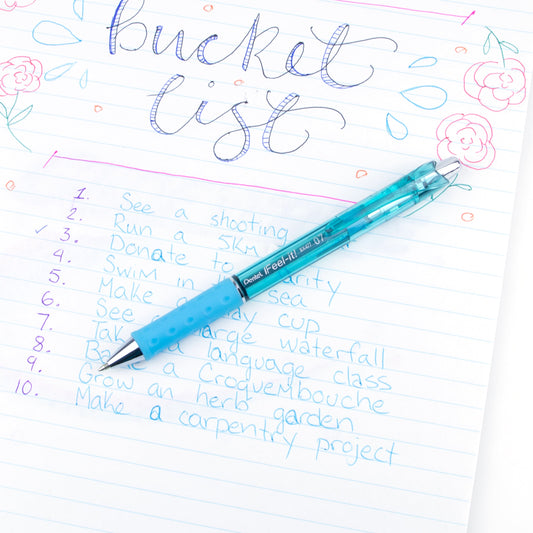 bucket
list
1. See a shooting
2. Run a 5km
✓ 3. Donate to
4. Swim in sea
5. Make a cup
6. See a large waterfall
7. a language class
8. a Croquembouche
9. Grow an herb garden
10. Make a carpentry project
Pentel iFeel-it! 0.7